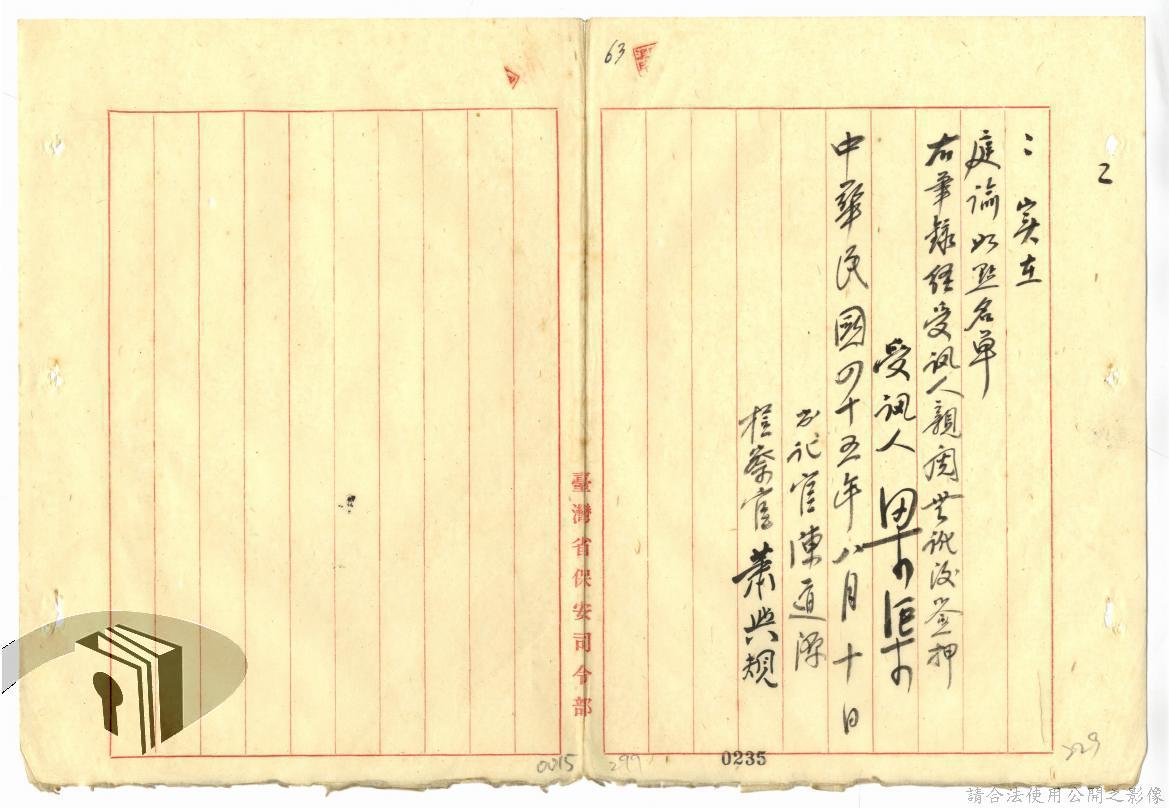 63
2
：实在
庭諭如點名單
右筆錄經受訊人親閱無訛後簽押
受訊人
中華民國四十五年八月十日
書記官陳道源
檢察官蕭與規
臺灣省保安司令部
0235
299
0015
329
請合法使用公開之影像